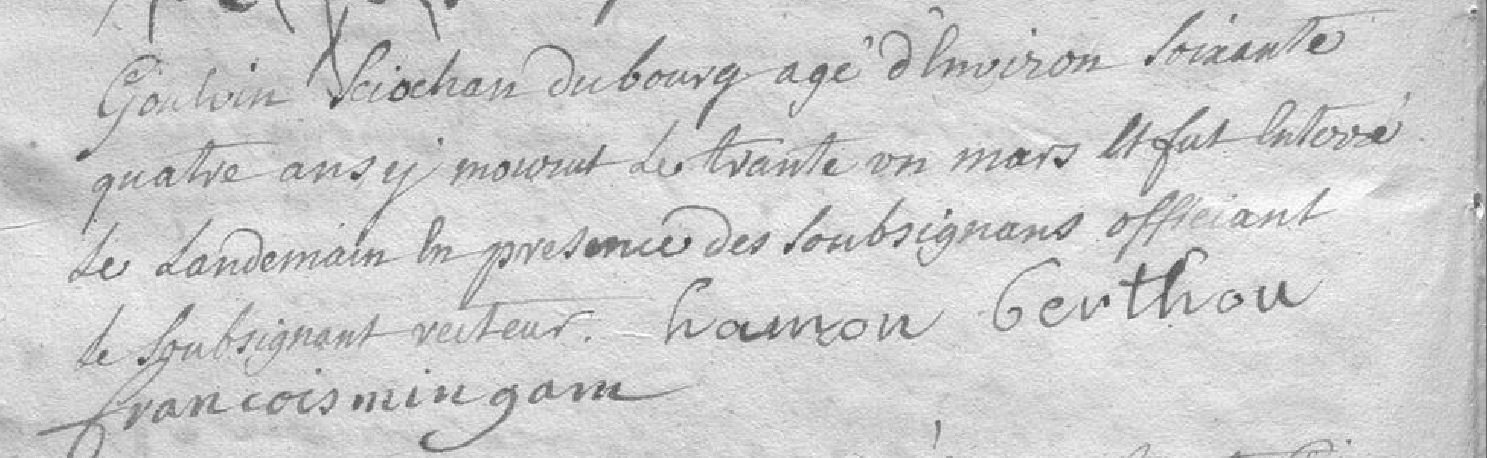 Goulvin Sciochan du bourg agé d'Environ soixante
quatre ans y mourut Le trante un mars Et fut Enterré
Le Landemain En presence des soubsignans officiant
le soubsignant recteur. hamon berthou
francois mingam